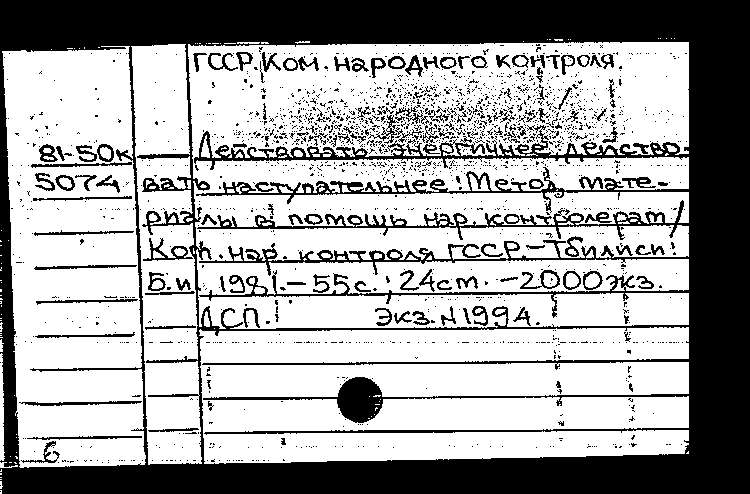 ГССР. Ком. народного контроля.
81-50к Действовать энергичнее, действо-
5074 вать наступательнее! Метод. мате-
риалы в помощь нар. контролерам/
Ком. нар. контроля ГССР.-Тбилиси:
Б.и., 1981.-55с.; 24см. -2000экз.
ДСП. Экз.N1994.
6